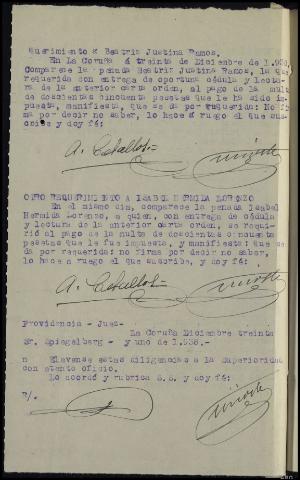 querimiento a Beatriz Justina Ramos.
En La Coruña á treinta de Diciembre de 1.936,
Comparece la penada Beatriz Justina Ramos, la que
requerida con entrega de oportuna cédula y lectu-
ra de la anterior carta orden, al pago de la multa
de doscientas cincuenta pesetas que le ha sido im-
puesta, manifiesta, que se da por requerida: No fir
ma por decir no saber, lo hace á ruego el que sus-
cribe y doy fé:
A. Ceballos
OTRO REQUERIMIENTO A ISABEL HERMIDA LORENZO
En el mismo dia, comparece la penada Isabel
Hermida Lorenzo, a quien, con entrega de cédula
y lectura de la anterior carta orden, se requi-
rió al pago de la multa de doscientas cincuenta
pesetas que le fue impuesta, y manifiesta: que se
da por requerida: no firma por decir no saber,
lo hace a ruego el que suscribe, y doy fé:
A. Ceballos
Providencia - Juez.
La Coruña Diciembre treinta
Sr. Spiegelberg - y uno de 1.936.-
n Elevense estas diligencias a la Superioridad
con atento oficio.
Lo acordó y rubrica S.S. y doy fé:
R/.